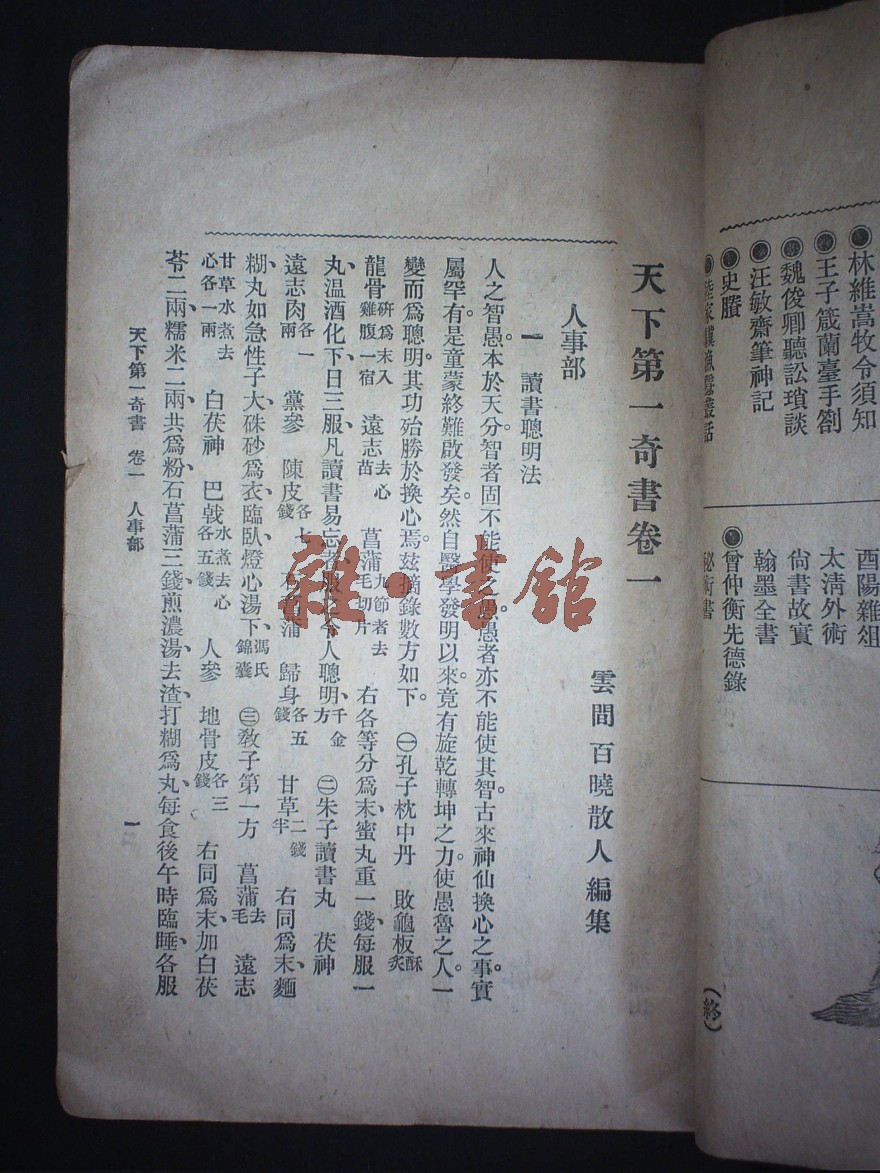 林維嵩牧令須知
王子箴蘭臺手劄
魏俊卿聽訟瑣談
汪敏齋筆神記
史賸
叢話
酉陽雜俎
太清外術
尙書故實
翰墨全書
曾仲衡先德錄
秘術書
(終)
天下第一奇書卷一
雲間百曉散人編集
人事部
一 讀書聰明法
人之智愚。本於天分。智者固不能使之愚。愚者亦不能使其智。古來神仙換心之事。實
屬罕有。是童蒙終難啟發矣。然自醫學發明以來。竟有旋乾轉坤之力。使愚魯之人。一
變而爲聰明。其功殆勝於換心焉。茲摘錄數方如下。 ㊀孔子枕中丹 敗龜板酥炙
龍骨研爲末入雞腹一宿 遠志去心苗 菖蒲九節者去毛切片 右各等分爲末、蜜丸重一錢、每服一
丸、温酒化下、日三服、凡讀書易忘者服之、令人聰明、千金方 ㊁朱子讀書丸 茯神
遠志肉各一兩 黨參 陳皮各七錢 石菖蒲 歸身各五錢 甘草二錢半 右同爲末、麵
糊丸如急性子大、硃砂爲衣、臨臥燈心湯下、馮氏錦囊 ㊂敎子第一方 菖蒲去毛 遠志
甘草水煮去心各一兩 白茯神 巴戟水煮去心各五錢 人參 地骨皮各三錢 右同爲末、加白茯
苓二兩、糯米二兩、共爲粉、石菖蒲三錢、煎濃湯、去渣、打糊爲丸、每食後午時臨睡、各服
天下第一奇書 卷一 人事部
一
雜·書館